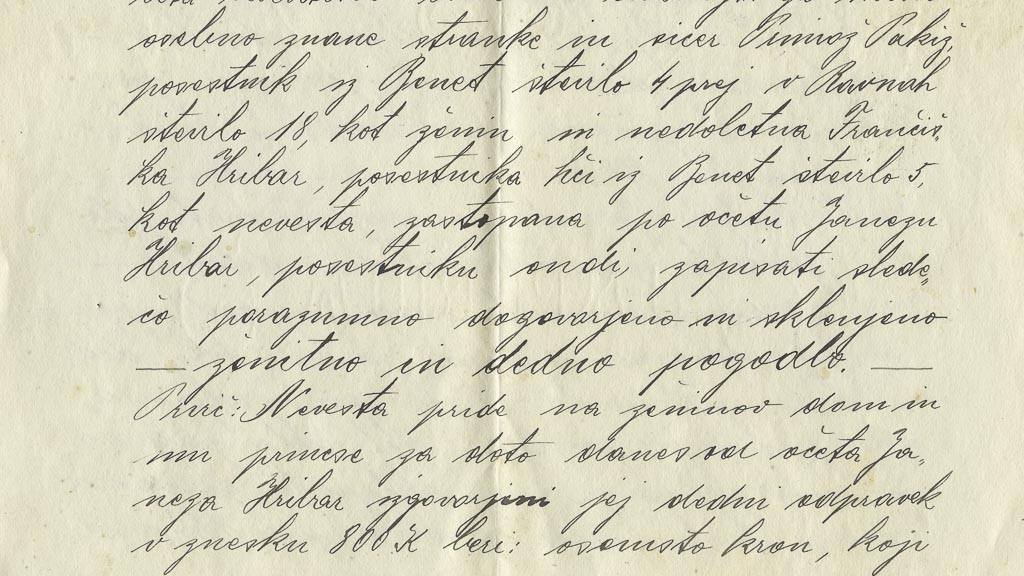 osebno znane stranke in sicer Primož Pakiž,
posestnik iz Benet število 4 prej v Ravnah
število 18, kot ženin in nedoletna Franciš-
ka Hribar, posestnika hči iz Benet število 5,
kot nevesta, zastopana po očetu Janezu
Hribar, posestniku ondi, zapisati slede-
čo porazumno dogovorjeno in sklenjeno
— ženitno in dedno pogodbo. —
Prvič: Nevesta pride na ženinov dom in
mu prinese za doto danes od očeta Ja-
neza Hribar izgovorjeni jej dedni odpravek
v znesku 800 K beri: osemsto kron, koji